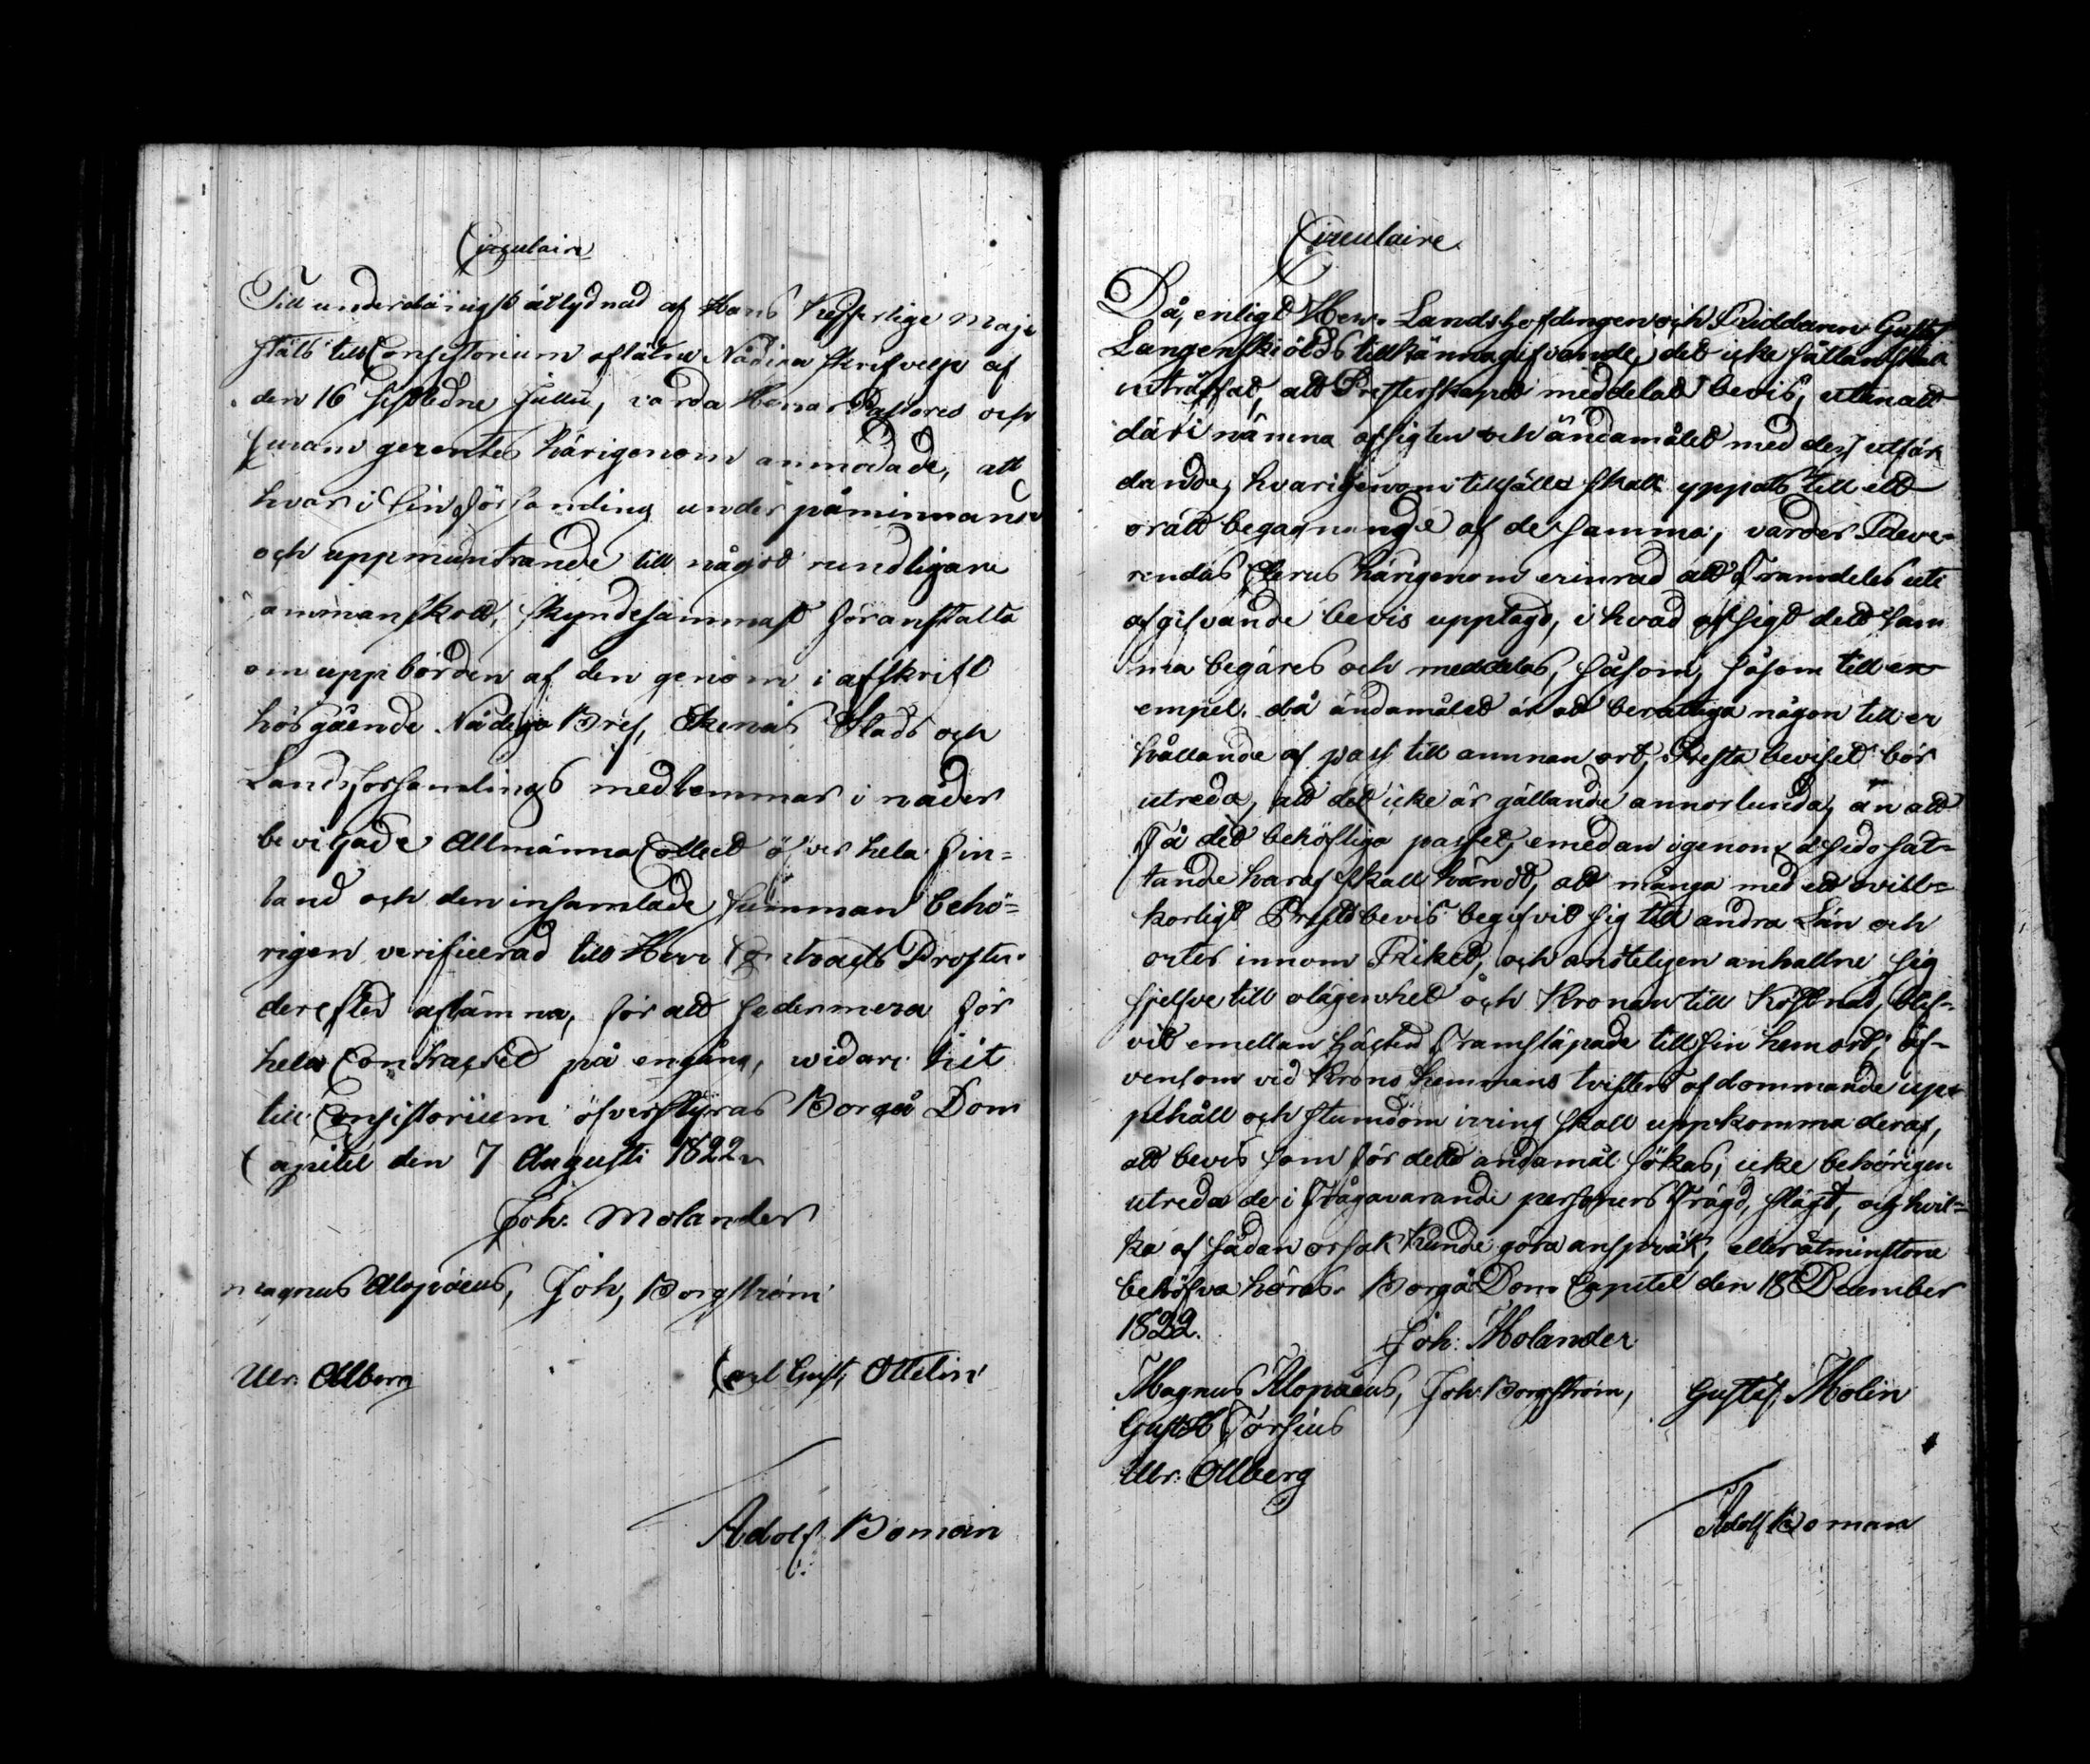 Circulaire
Till underdånigst åtlydnad af Hans Kejserlige Maje
ställs till Consistorium aflåtne Nådiga skrifvelse af
den 16 sistledne Julii, varda Herrar Pastores och
Curam gerentes härigenom anmodade, att
hvar i sin församling under påminnande
och uppmuntrande till något rundligare
ammanskott, skyndesammast föranstalta
om uppbörden af den genom i afskrift
hosgående Nådiga Bref, Ekenäs Stads och
Landsförsamlings medlemmar i nåder
beviljade Allmänna Collect öfver hela Fin=
land och den insamlade summan behö=
rigen verificerad till Herr Contracts Prosten
derefter aflämna, för att sedermera för
hela Contractet på en gång, widare hit
till Consistorium öfverstyras Borgå Dom
Capitel den 7 Augusti 1822
Joh. Molander
Magnus Alopæus, Joh, Borgström
Ulr. Ahlberg Carl Gust. Ottelin
Adolf Boman
Circulaire
Då, enligt Herr Landshöfdingen och Riddaren Gustaf
Langenskiölds tillkännagifvande, det icke sällan skall
inträffat, att Presterskapet meddelat bevis, utan att
däri nämna afsigten och ändamålet med dess utfär
dande, hvarigenom tillfälle skall yppats till ett
orätt begagnande af desamma; varder Reve=
rendas Clerus härigenom erinrad att framdeles uti
afgifvande bevis upptaga, i hvad afsigt dett sam
ma begäres och meddelas, såsom, såsom till ex
empel. då ändamålet är att berättiga någon till er
hållande af pass till annan ort, Presta beviset bör
utreda, att det icke är gällande annorlunda, än att
få det behöfliga passet, emedan igenom åsidosät=
tande haraf skall händt, att många med ett ovill=
korligt Prestbevis begifvit sig till andra Län och
orter innom Riket, och andteligen anhallne sig
sjelfve till olägenhet och Kronan till kostnad, blif=
vit emellan Häkten framsläpade till sin hemort; äf=
vensom vid Krono hemmans tvisters afdommande up=
pehåll och stundom irring skall uppkomma deraf,
att bevis som för detta ändamål sökas, icke behörigen
utreda de i frågavarande personers frägd, slägt, och hvil=
ka af sådan orsak kunde göra anspråk, eller åtminstone
behöfva höras. Borgå Dom Capitel den 18 December
1822. Joh. Molander
Magnus Alopæus, Joh. Borgström, Gustaf Molin
Gustaf Forsius
Ulr. Ahlberg
Adolf Boman